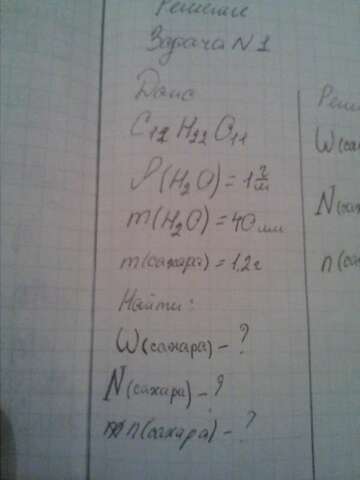 Решение
Задача N 1
Дано
C12 H22 O11
ρ(H2O) = 1 г/мл
m(H2O) = 40 мл
m(сахара) = 1,2 г
Найти:
W(сахара) - ?
N(сахара) - ?
n(сахара) - ?
Реше
W(сах
N(саха
n(са